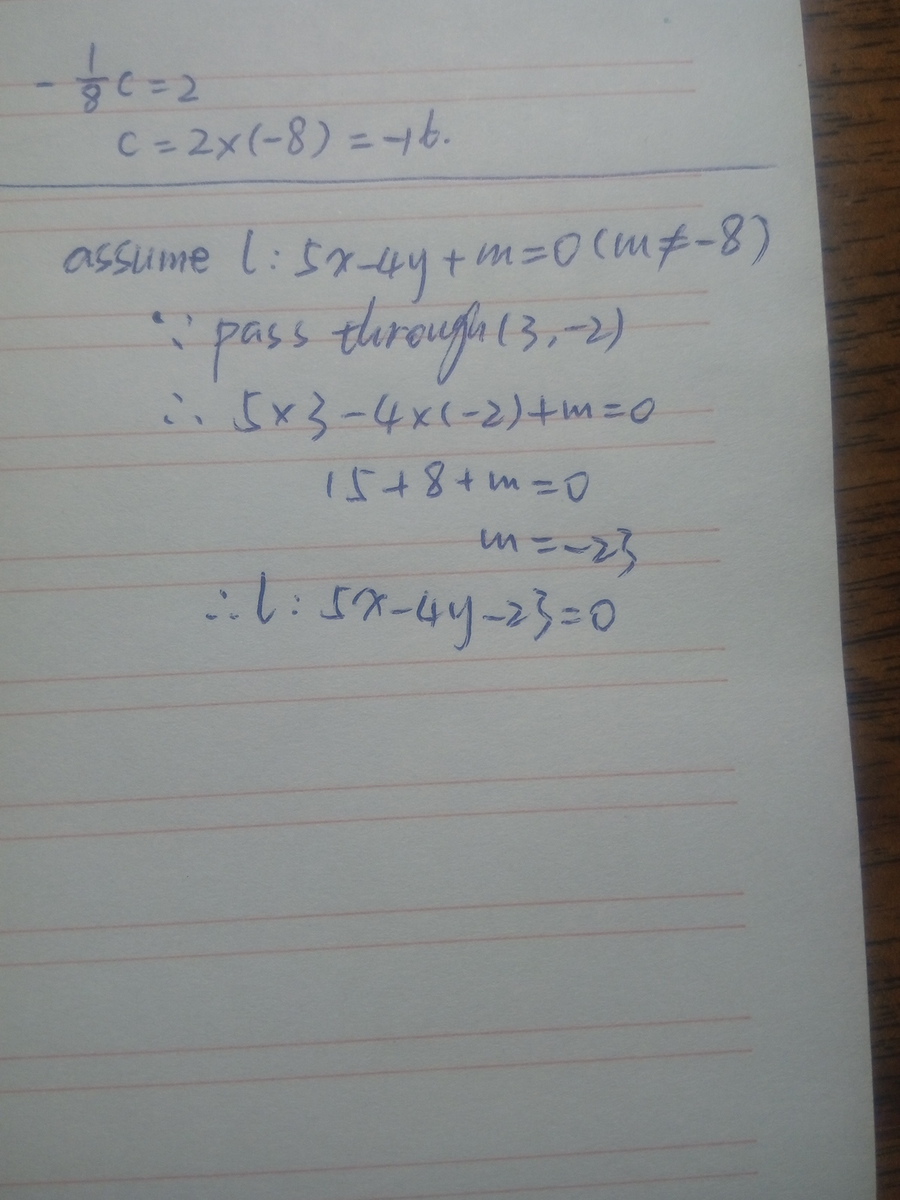 - 1/8 c = 2
c = 2×(-8) = -16.
assume l: 5x-4y+m=0 (m≠-8)
∵ pass through (3,-2)
∴ 5×3-4×(-2)+m=0
15+8+m=0
m=-23
∴ l: 5x-4y-23=0